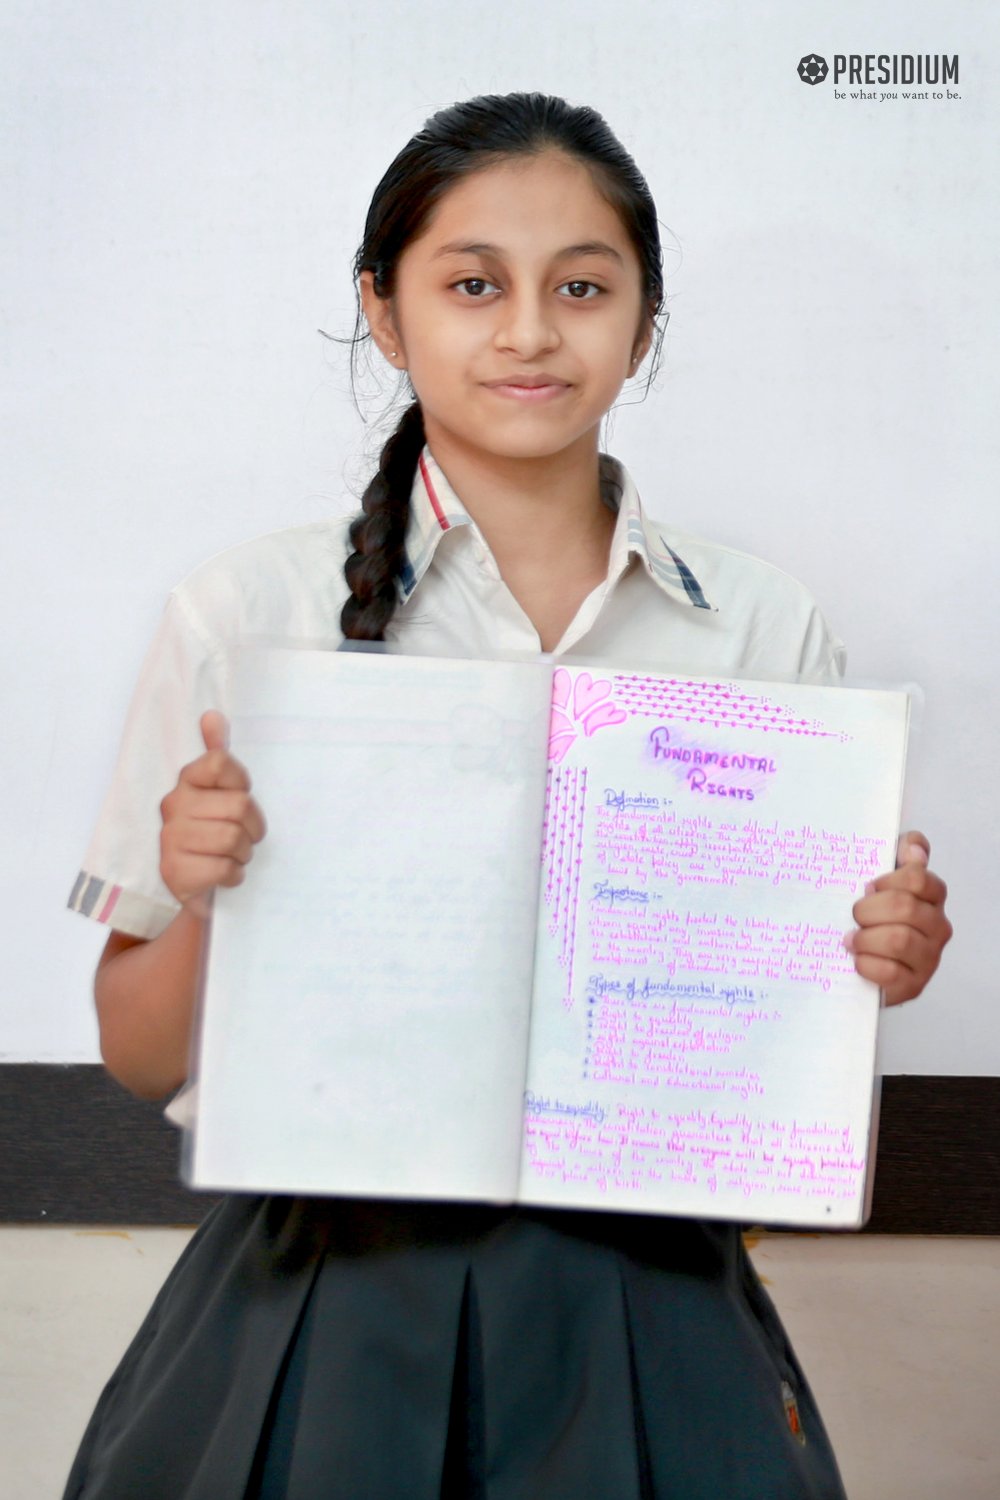 PRESIDIUM
be what you want to be.
FUNDAMENTAL
RIGHTS
Defination :-
The fundamental rights are defined as the basic human
rights of all citizens. The rights defined in Part III of
the constitution, apply irrespective of race, place of birth
religion, caste, creed or gender. The directive principles
of state policy are guidelines for the framing
of laws by the government.
Importance :-
Fundamental rights protect the liberties and freedom
citizens against any invasion by the state and
the establishment and authoritarian and dictatorial
in the country. They are very essential for all
development of individuals and the country.
Types of fundamental rights :-
There are six fundamental rights :-
Right to equality
Right to freedom of religion
Right against exploitation
Right to freedom
Right to constitutional remedies
Cultural and Educational rights
Right to equality: Right to equality Equality is the foundation of
democracy. The constitution guarantees that all citizens will
be equal before law, It means that everyone will be equally protected
by the laws of the country. The state will not discriminate
against a citizen on the basis of religion, race, caste, sex
or place of birth.